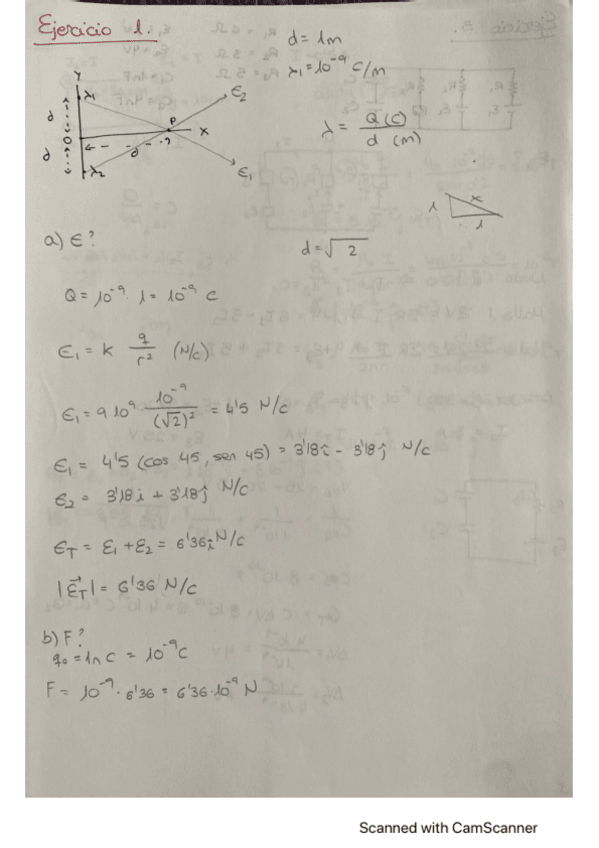 Ejercicio 1.
d = 1m
λ1 = 10^-9 C/m
λ = Q (C) / d (m)
Y
λ1
E2
d
0
P
X
d
d
λ2
E1
x
1
1
a) E?
d = √2
Q = 10^-9 · 1 = 10^-9 C
E1 = k q/r^2 (N/C)
E1 = 9 10^9 10^-9/(√2)^2 = 4'5 N/C
E1 = 4'5 (cos 45, sen 45) = 3'18i - 3'18j N/C
E2 = 3'18i + 3'18j N/C
ET = E1 + E2 = 6'36i N/C
|ET| = 6'36 N/C
b) F?
q0 = 1nC = 10^-9 C
F = 10^-9 · 6'36 = 6'36·10^-9 N
Scanned with CamScanner